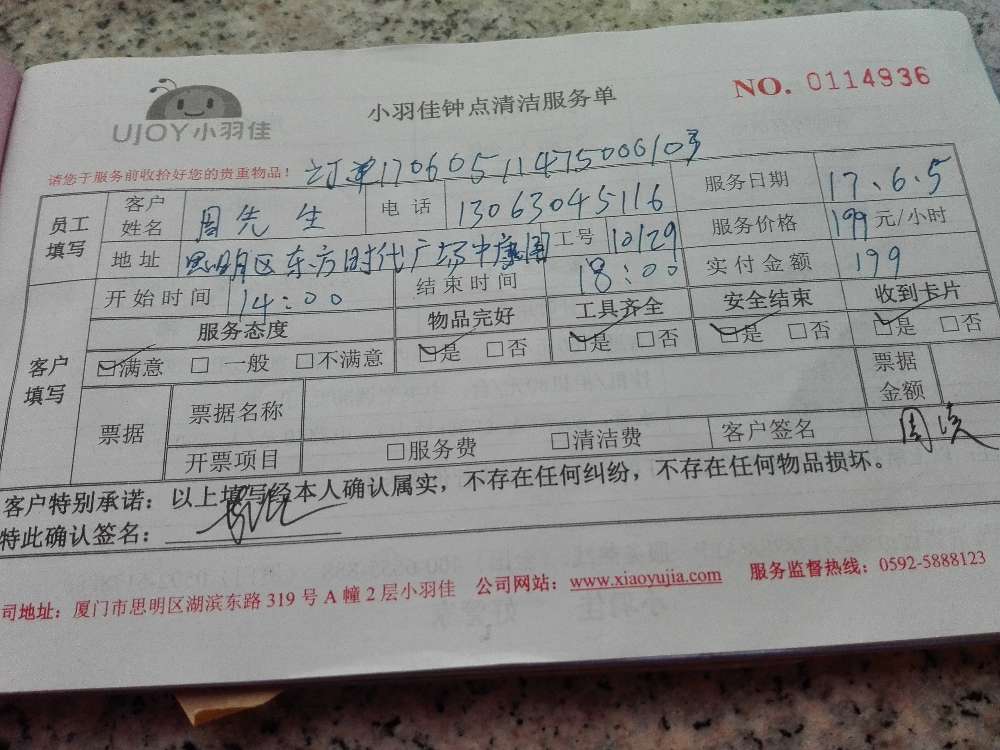 UJOY小羽佳
小羽佳钟点清洁服务单
NO. 0114936
请您于服务前收拾好您的贵重物品！
订单17060511475000610号
员工填写 客户姓名 周先生 电话 13063045116 服务日期 17、6、5
地址 思明区东方时代广场中康阁 工号 10129 服务价格 199元/小时
开始时间 14：00 结束时间 18：00 实付金额 199
客户填写 服务态度 物品完好 工具齐全 安全结束 收到卡片
满意 一般 不满意 是 否 是 否 是 否 是 否
票据 票据名称 票据金额
开票项目 服务费 清洁费 客户签名 周
客户特别承诺：以上填写经本人确认属实，不存在任何纠纷，不存在任何物品损坏。
特此确认签名：
司地址：厦门市思明区湖滨东路319号A幢2层小羽佳 公司网站：www.xiaoyujia.com 服务监督热线：0592-5888123